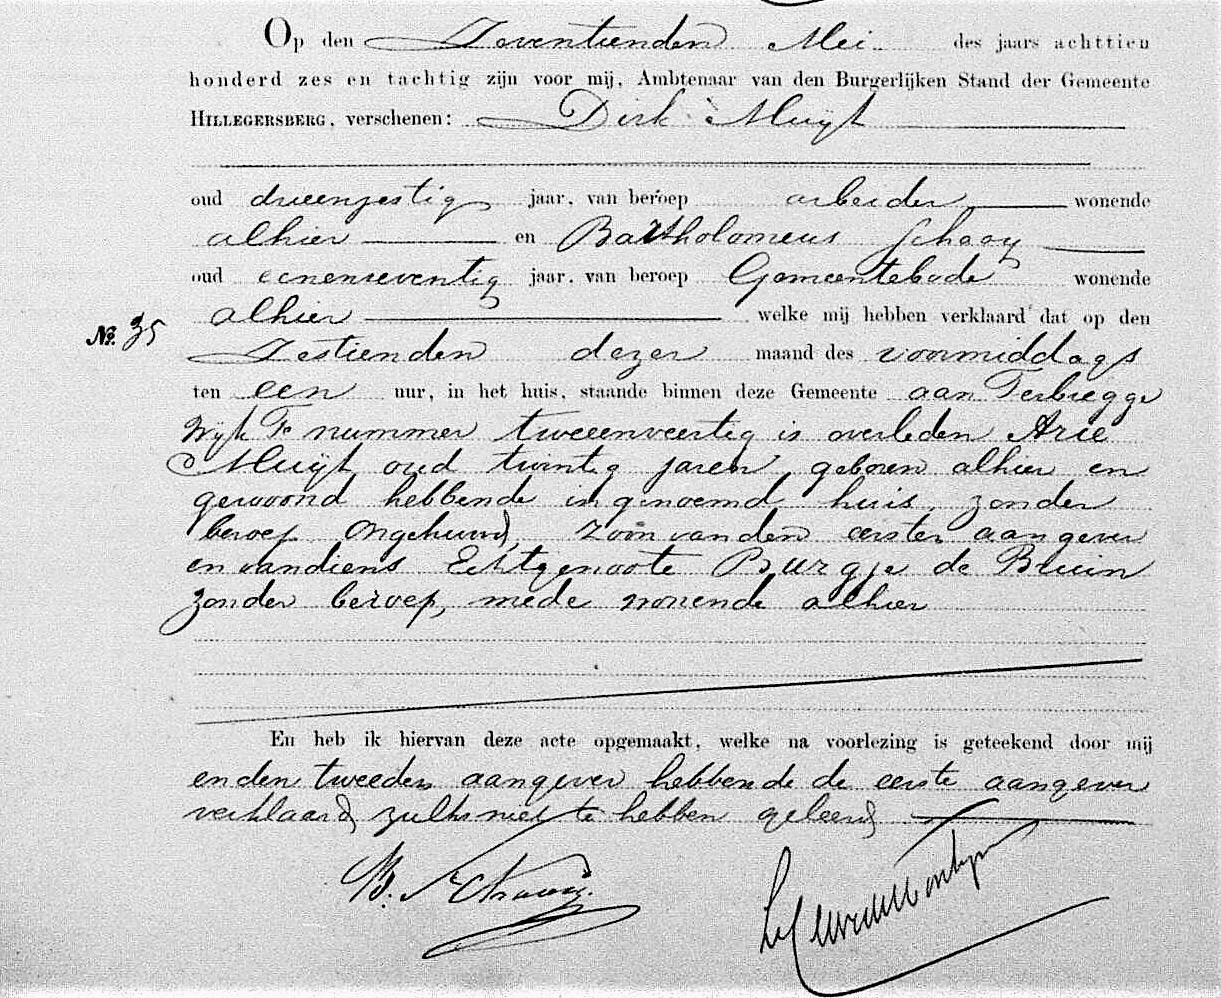 Op den Zeventienden Mei des jaars achttien
honderd zes en tachtig zijn voor mij, Ambtenaar van den Burgerlijken Stand der Gemeente
HILLEGERSBERG, verschenen: Dirk Muijt
oud drieenzestig jaar, van beroep arbeider wonende
alhier en Bartholomeus Schaay
oud eenenzeventig jaar, van beroep Gemeentebode wonende
alhier welke mij hebben verklaard dat op den
No. 35
Zestienden dezer maand des voormiddags
ten een uur, in het huis, staande binnen deze Gemeente aan Terbregge
Wijk F nummer tweeenveertig is overleden Arie
Muijt, oud twintig jaren, geboren alhier en
gewoond hebbende in genoemd huis, zonder
beroep ongehuwd, zoon van den eersten aangever
en van diens Echtgenoote Burgje de Bruin
zonder beroep, mede wonende alhier
En heb ik hiervan deze acte opgemaakt, welke na voorlezing is geteekend door mij
en den tweeden aangever hebbende de eerste aangever
verklaard zulks niet te hebben geleerd
B. Schaaij.